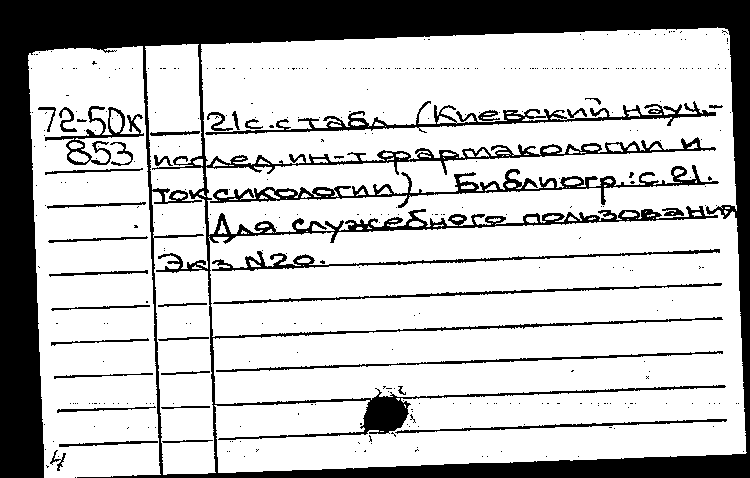 72-50к 21с. с табл (Киевский науч.-
853 исслед. ин-т фармакологии и
токсикологии). Библиогр.: с. 21.
Для служебного пользования
Экз N20.
4